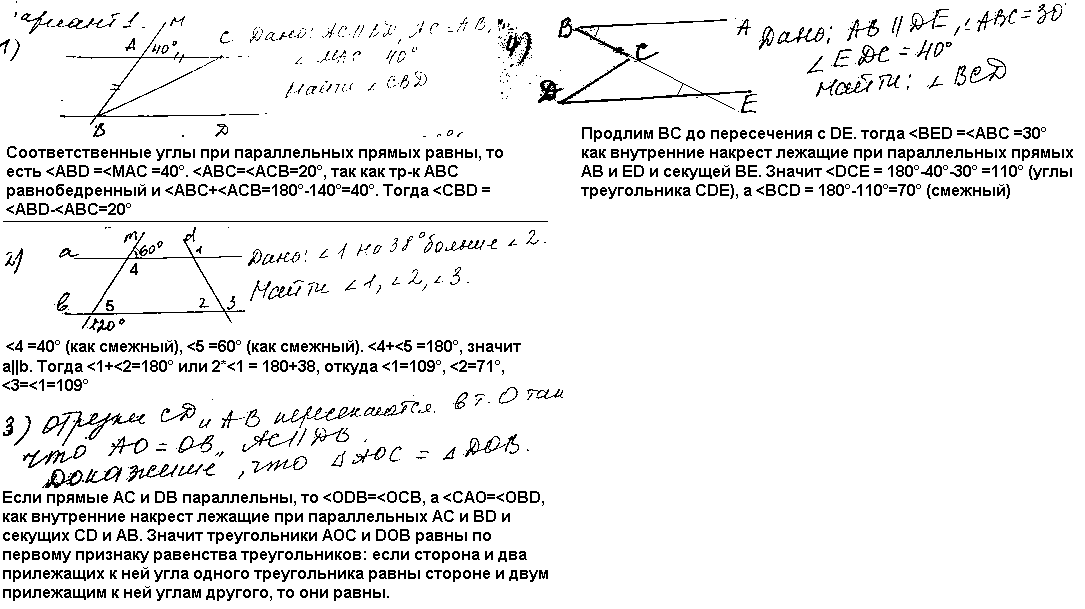 Вариант 1.
1)
M
A 40° C
B D
Дано: AC || BD, AC = AB,
∠MAC = 40°
Найти ∠CBD
Соответственные углы при параллельных прямых равны, то
есть <ABD =<MAC =40°. <ABC=<ACB=20°, так как тр-к ABC
равнобедренный и <ABC+<ACB=180°-140°=40°. Тогда <CBD =
<ABD-<ABC=20°
2)
a m 60° d 1
4
b 5 2 3
120°
Дано: ∠1 на 38° больше ∠2.
Найти ∠1, ∠2, ∠3.
<4 =40° (как смежный), <5 =60° (как смежный). <4+<5 =180°, значит
a||b. Тогда <1+<2=180° или 2*<1 = 180+38, откуда <1=109°, <2=71°,
<3=<1=109°
3) Отрезки CD и AB пересекаются в т. O так
что AO = OB, AC || DB.
Докажите, что △AOC = △DOB.
Если прямые AC и DB параллельны, то <ODB=<OCB, а <CAO=<OBD,
как внутренние накрест лежащие при параллельных AC и BD и
секущих CD и AB. Значит треугольники AOC и DOB равны по
первому признаку равенства треугольников: если сторона и два
прилежащих к ней угла одного треугольника равны стороне и двум
прилежащим к ней углам другого, то они равны.
4)
B A
C
D E
Дано: AB || DE, ∠ABC = 30°
∠EDC = 40°
Найти: ∠BCD
Продлим BC до пересечения с DE. тогда <BED =<ABC =30°
как внутренние накрест лежащие при параллельных прямых
AB и ED и секущей BE. Значит <DCE = 180°-40°-30° =110° (углы
треугольника CDE), а <BCD = 180°-110°=70° (смежный)